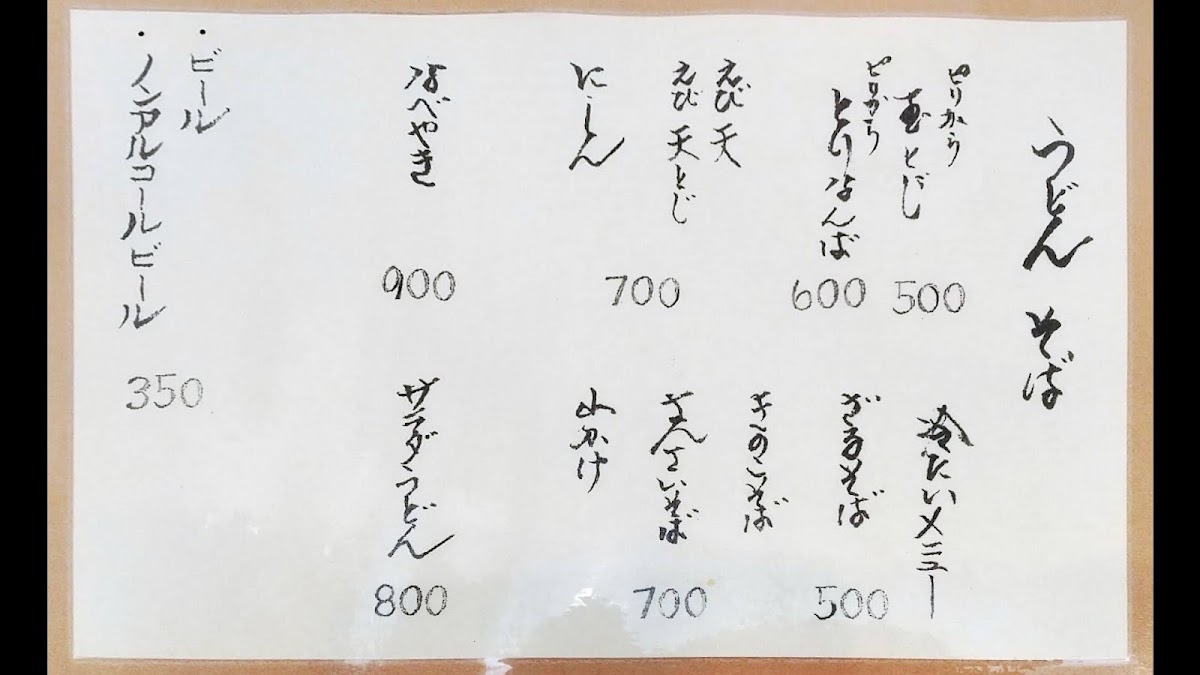 うどん そば
ピリから
玉とじ
500
ピリから
とりなんば
600
えび天
えび天とじ
にしん
700
なべやき
900
冷たいメニュー
ざるそば
500
きのこそば
さんさいそば
山かけ
700
サラダうどん
800
・ビール
・ノンアルコールビール
350